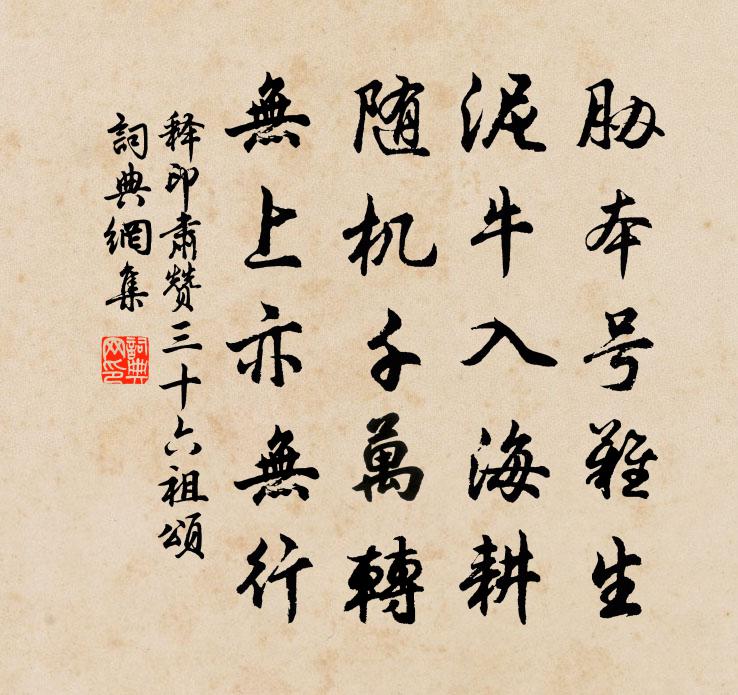 胁本号难生
泥牛入海耕
随机千萬轉
無上亦無行
释印肃赞三十六祖頌
詞典網集
詞典網印